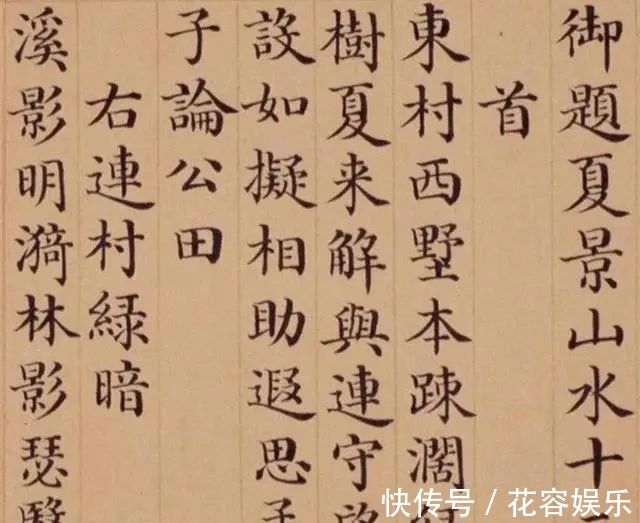 御題夏景山水十
首
東村西墅本踈濶
樹夏来解與連守
設如擬相助遐思
子論公田
右連村緑暗
溪影明漪林影瑟
快传号/花容娱乐